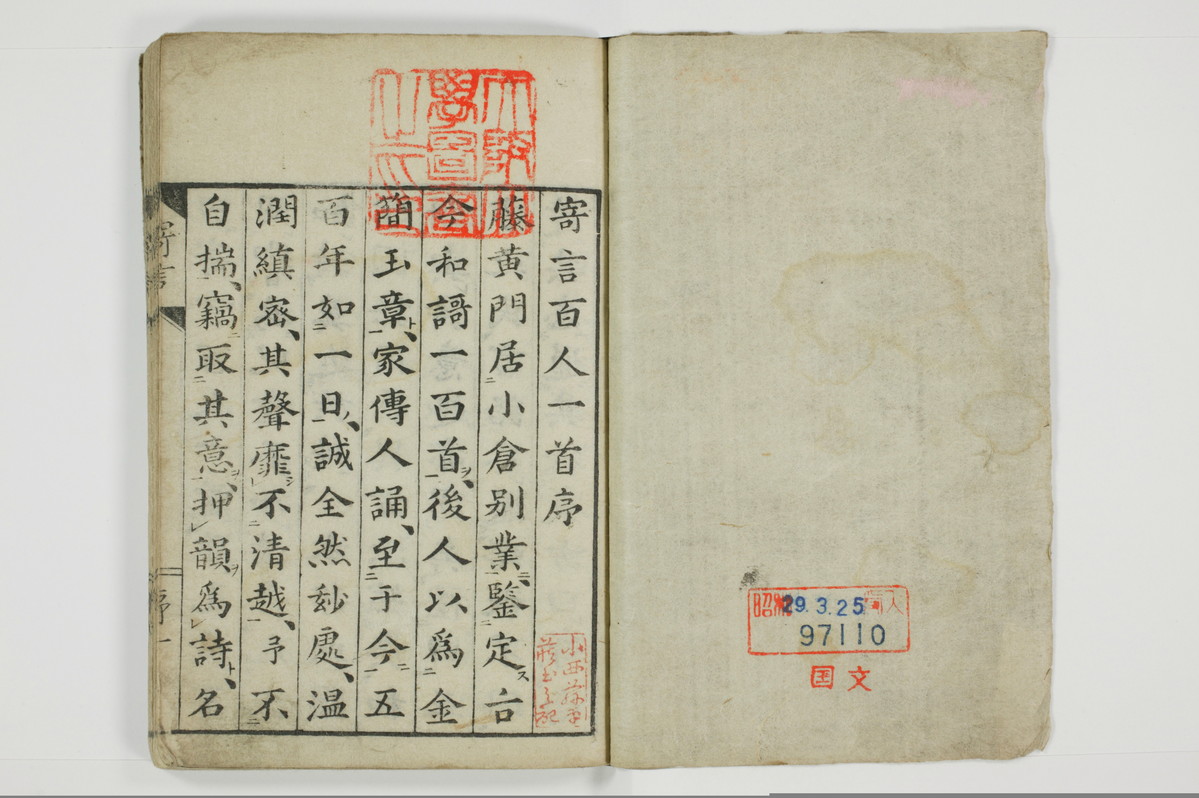 寄言百人一首序
藤黄門居小倉別業、鑒定古
今和謌一百首、後人以爲金
簡玉章、家傳人誦、至于今五
百年如一日、誠全然玅處、温
潤縝密、其聲靡不清越、予不
自揣、竊取其意、押韻爲詩、名
寄言
序一
昭和29.3.25
97110
国文